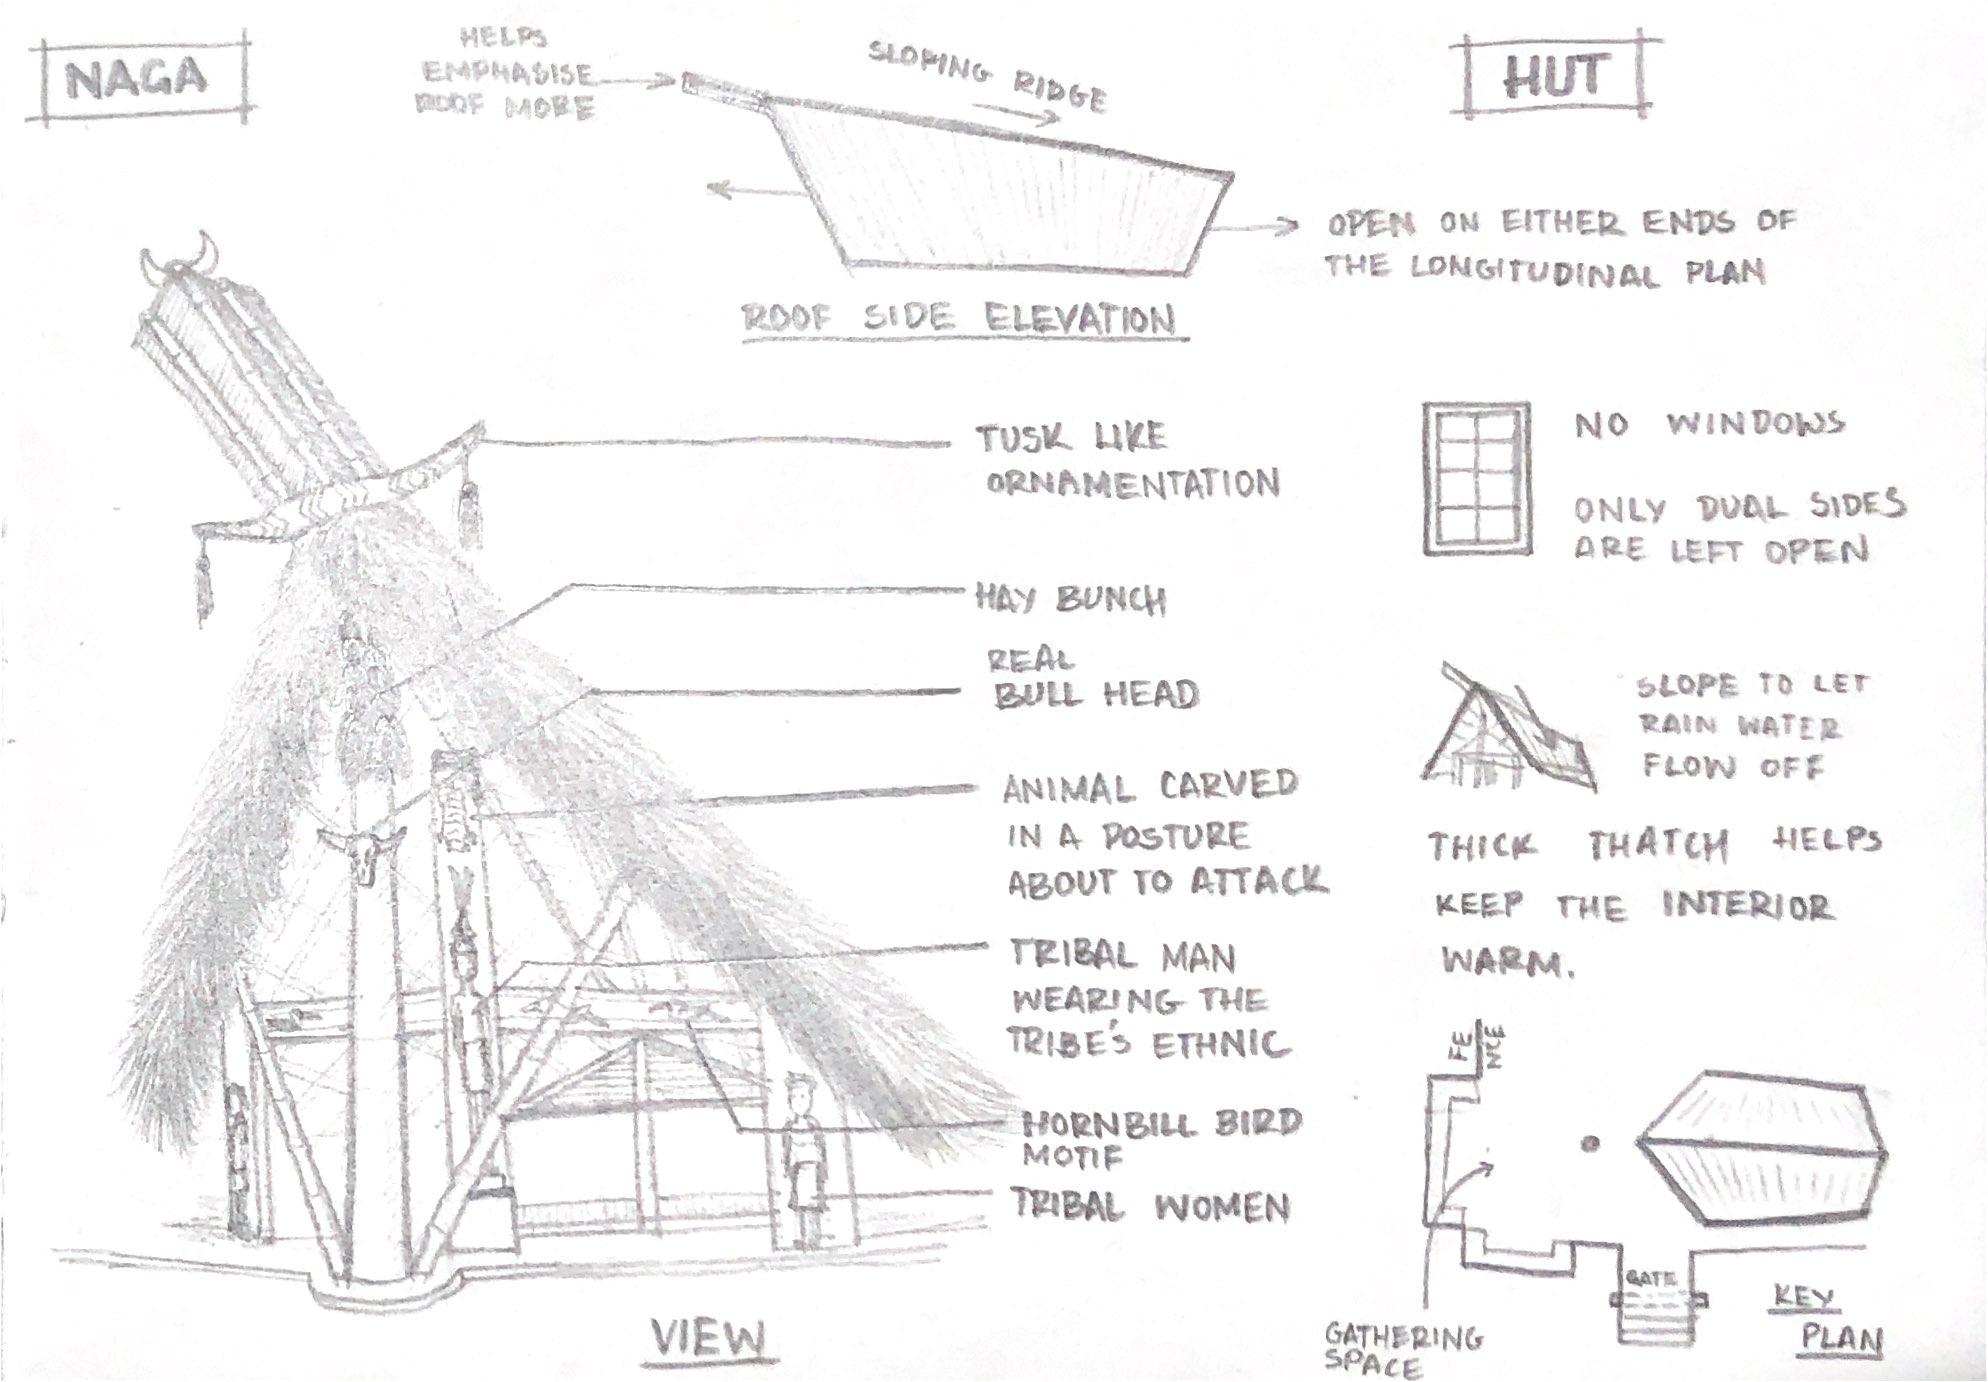 NAGA
HELPS
EMPHASISE
ROOF MORE
SLOPING RIDGE
HUT
OPEN ON EITHER ENDS OF
THE LONGITUDINAL PLAN
ROOF SIDE ELEVATION
TUSK LIKE
ORNAMENTATION
NO WINDOWS
ONLY DUAL SIDES
ARE LEFT OPEN
HAY BUNCH
REAL
BULL HEAD
SLOPE TO LET
RAIN WATER
FLOW OFF
ANIMAL CARVED
IN A POSTURE
ABOUT TO ATTACK
THICK THATCH HELPS
KEEP THE INTERIOR
WARM.
TRIBAL MAN
WEARING THE
TRIBE'S ETHNIC
HORNBILL BIRD
MOTIF
TRIBAL WOMEN
FE
NCE
GATE
KEY
PLAN
GATHERING
SPACE
VIEW